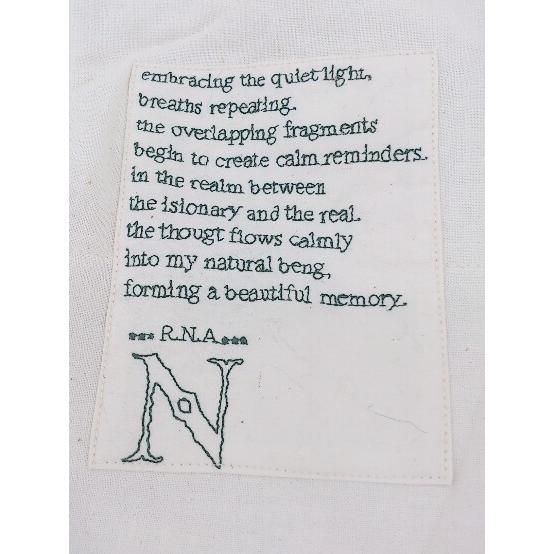 embracing the quiet light,
breaths repeating.
the overlapping fragments
begin to create calm reminders.
in the realm between
the isionary and the real.
the thougt flows calmly
into my natural beng,
forming a beautiful memory.
... R.N.A...
N